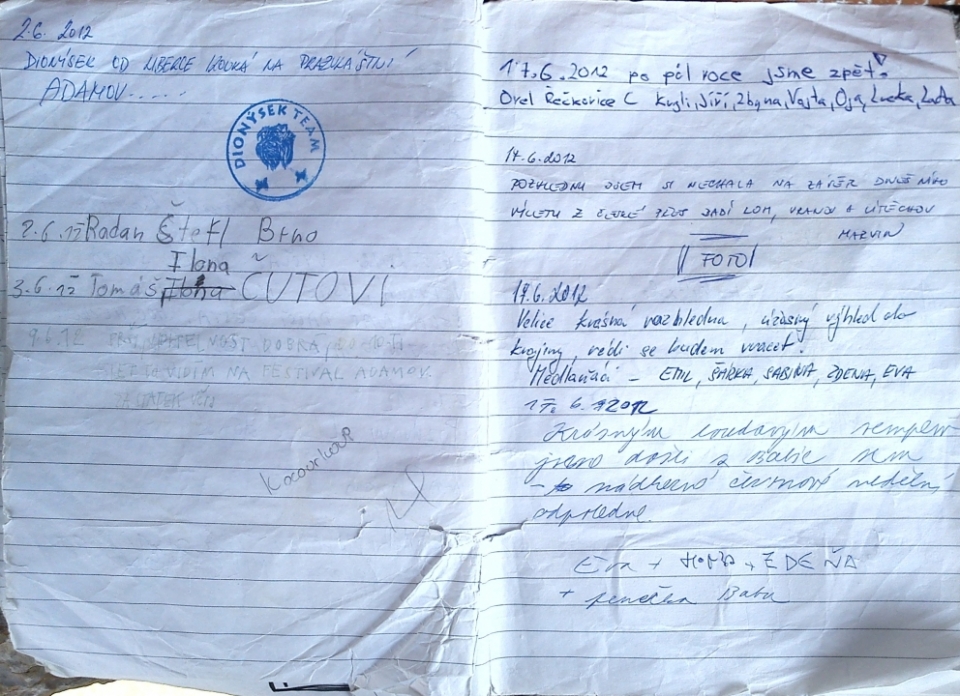 2.6. 2012
DIONÝSEK OD LIBERCE KOUKÁ NA
ADAMOV.....
DIONÝSEK TEAM
2.6.12 Radan Štefl Brno
Ilona
3.6.12 Tomáš, Ilona ČUTOVI
9.6.12 DOBRÁ,
NA FESTIVAL ADAMOV
ZAČÁTEK
17.6.2012 po půl roce jsme zpět!
Orel Řečkovice C Kugli, Jiří, Zbyna, Vajta, Oja, Lucka, Lada
14.6.2012
JSEM SI NECHALA NA ZÁVĚR DNEŠNÍHO
VÝLETU Z PŘES LOM, VRANOV A ÚTĚCHOV
MARVIN
FOTO
17.6.2012
Velice krásná rozhledna, úžasný výhled do
krajiny, rádi se budem vracet!
Medláňáci - EMIL, ŠÁRKA, SABINA, ZDENA, EVA
17. 6. 2012
Krásným loudavým tempem
jsme došli z Babic sem
- nádherné červnové nedělní
odpoledne.
Eva + + ZDEŇA
+ fenečka